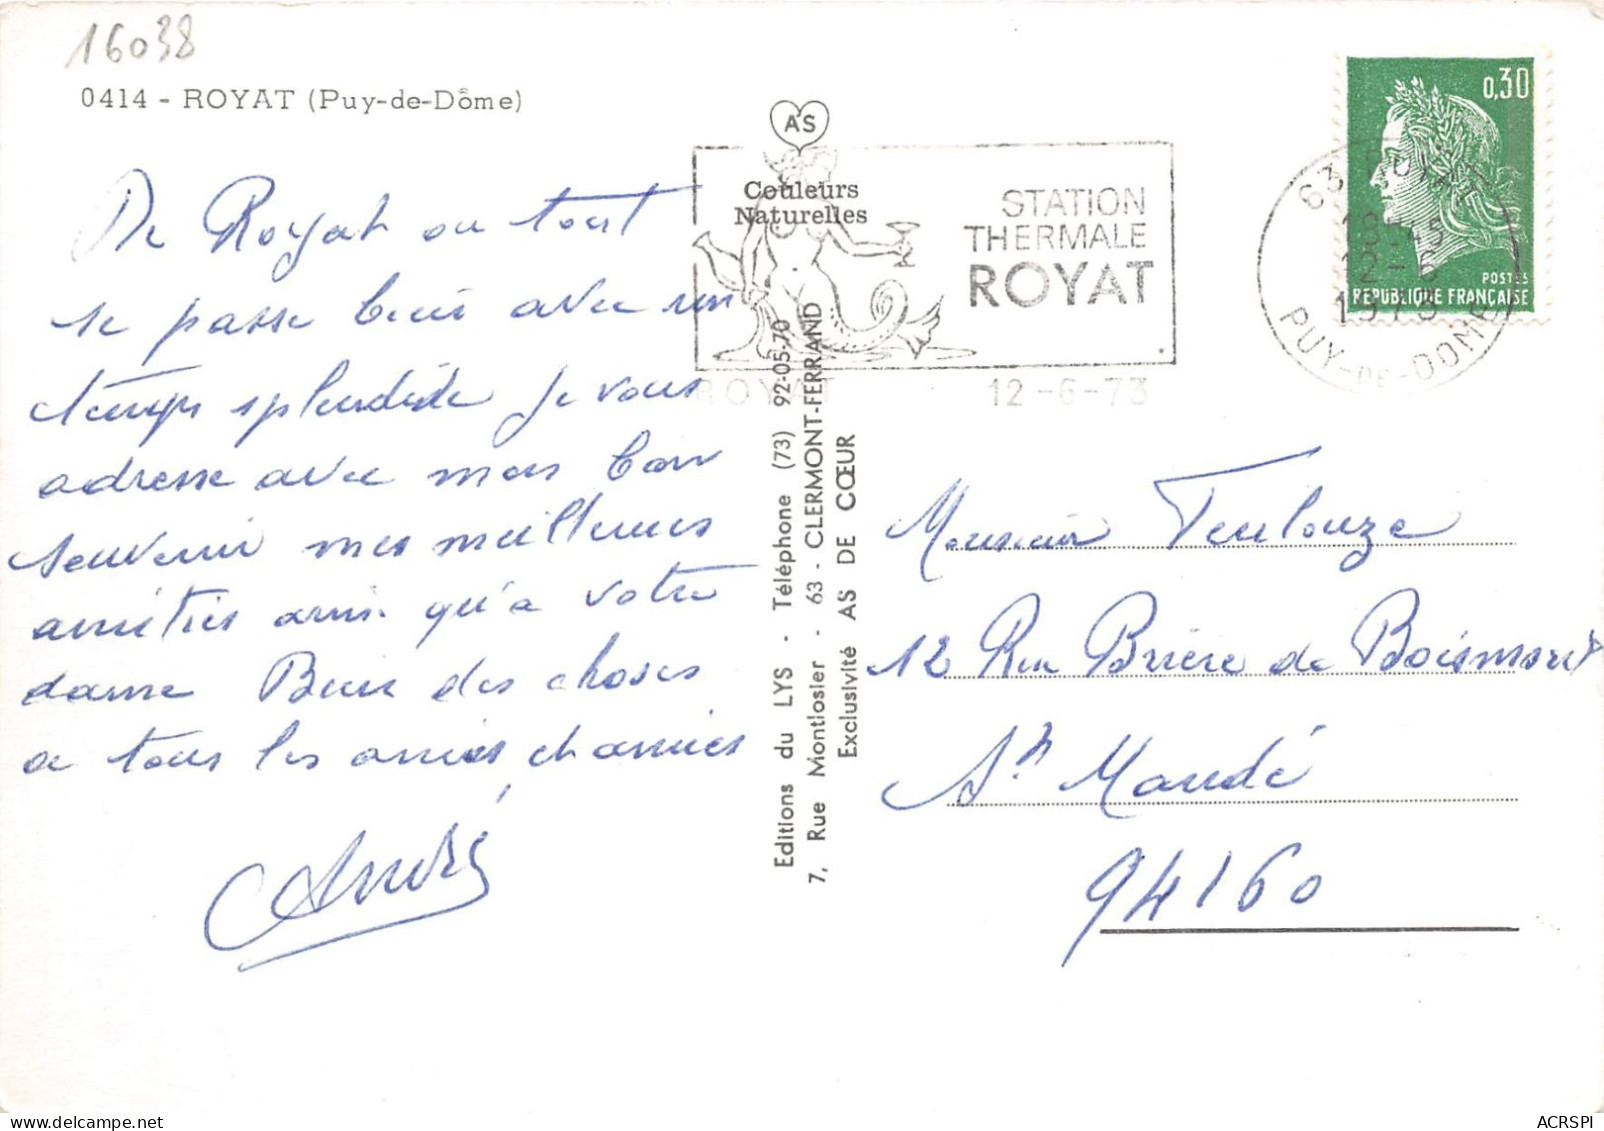 16038
0414 - ROYAT (Puy-de-Dôme)
De Royat ou tout
se passe bien avec un
temps splendide je vous
adresse avec mon bon
souvenir mes meilleures
amitiés ainsi qu'a votre
dame Bien des choses
a tous les amies et amies
André
AS
Couleurs
Naturelles
STATION
THERMALE
ROYAT
ROYAT 12-6-73
Editions du LYS - Téléphone (73) 92-05-70
7, Rue Montlosier - 63 - CLERMONT-FERRAND
Exclusivité AS DE CŒUR
0,30
POSTES
REPUBLIQUE FRANÇAISE
63 ROYAT
12-6
1973
PUY-DE-DOME
Monsieur Teulouze
12 Rue Brière de Boismont
St Mandé
94160
ACRSPI